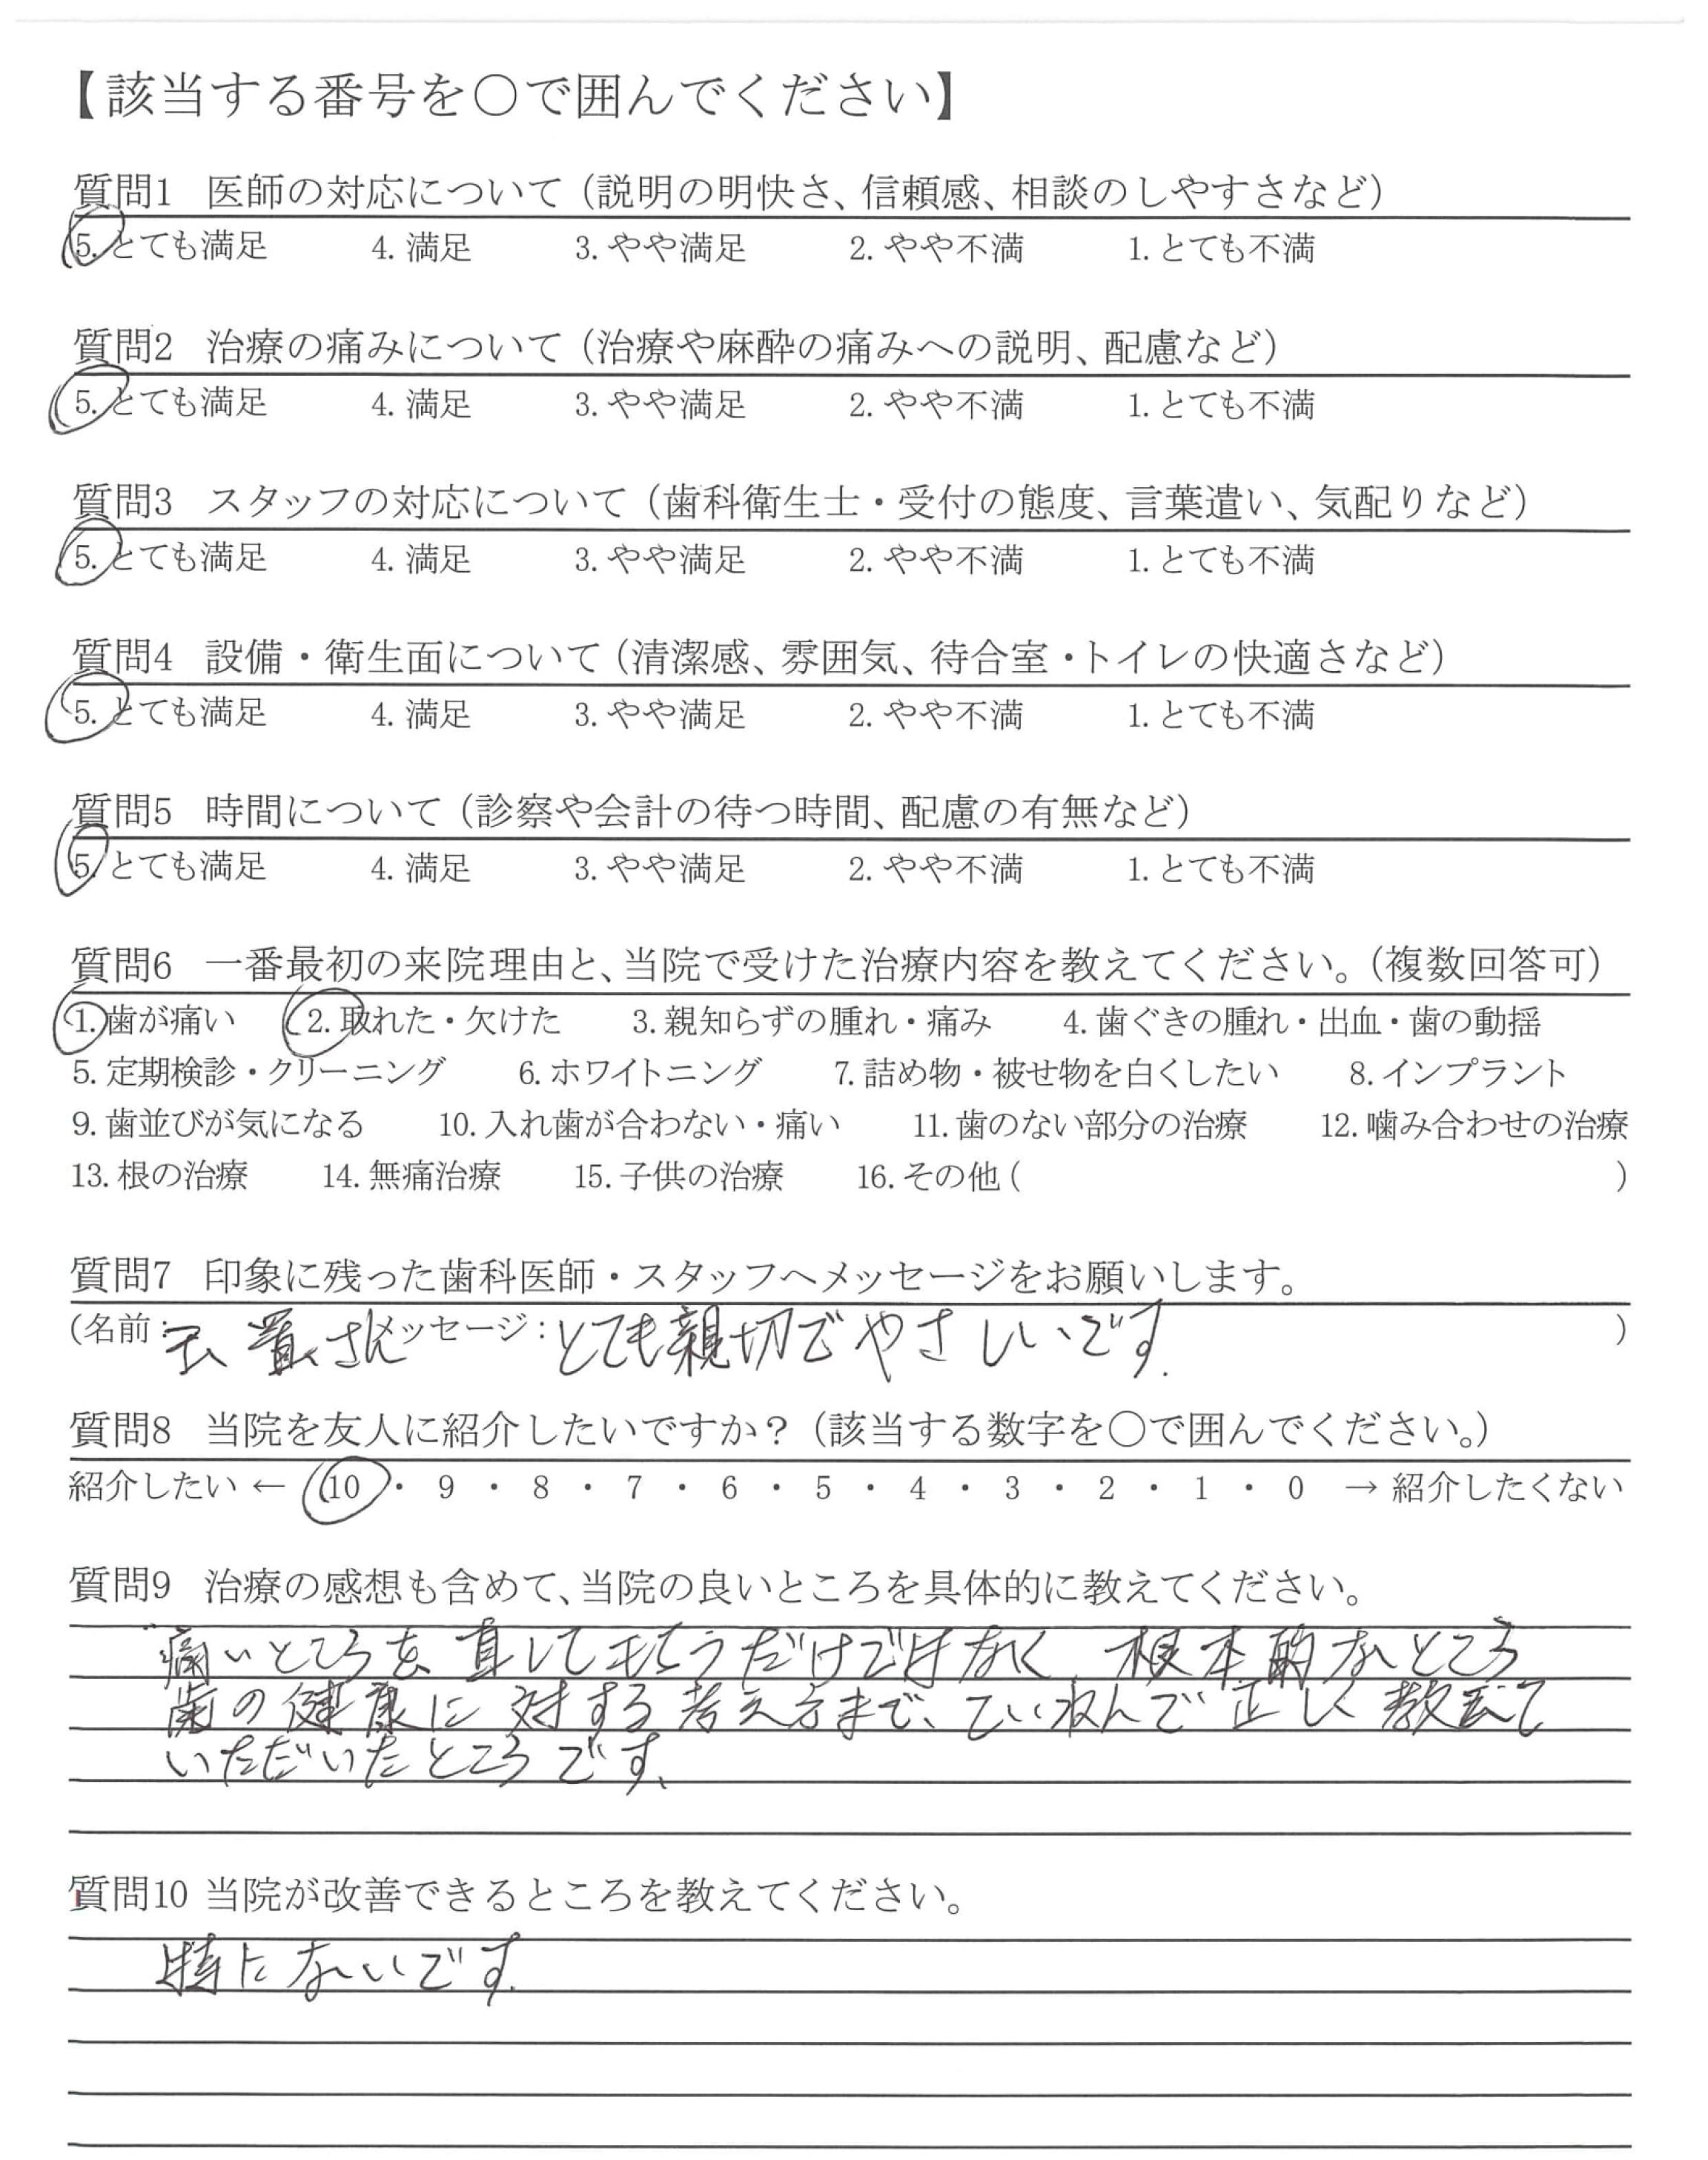 【該当する番号を○で囲んでください】
質問1 医師の対応について（説明の明快さ、信頼感、相談のしやすさなど）
5.とても満足 4.満足 3.やや満足 2.やや不満 1.とても不満
質問2 治療の痛みについて（治療や麻酔の痛みへの説明、配慮など）
5.とても満足 4.満足 3.やや満足 2.やや不満 1.とても不満
質問3 スタッフの対応について（歯科衛生士・受付の態度、言葉遣い、気配りなど）
5.とても満足 4.満足 3.やや満足 2.やや不満 1.とても不満
質問4 設備・衛生面について（清潔感、雰囲気、待合室・トイレの快適さなど）
5.とても満足 4.満足 3.やや満足 2.やや不満 1.とても不満
質問5 時間について（診察や会計の待つ時間、配慮の有無など）
5.とても満足 4.満足 3.やや満足 2.やや不満 1.とても不満
質問6 一番最初の来院理由と、当院で受けた治療内容を教えてください。（複数回答可）
1.歯が痛い 2.取れた・欠けた 3.親知らずの腫れ・痛み 4.歯ぐきの腫れ・出血・歯の動揺
5.定期検診・クリーニング 6.ホワイトニング 7.詰め物・被せ物を白くしたい 8.インプラント
9.歯並びが気になる 10.入れ歯が合わない・痛い 11.歯のない部分の治療 12.噛み合わせの治療
13.根の治療 14.無痛治療 15.子供の治療 16.その他（ ）
質問7 印象に残った歯科医師・スタッフへメッセージをお願いします。
（名前： さん メッセージ：とても親切でやさしいです. ）
質問8 当院を友人に紹介したいですか？（該当する数字を○で囲んでください。）
紹介したい ← 10 ・ 9 ・ 8 ・ 7 ・ 6 ・ 5 ・ 4 ・ 3 ・ 2 ・ 1 ・ 0 → 紹介したくない
質問9 治療の感想も含めて、当院の良いところを具体的に教えてください。
痛いところを直してもらうだけではなく、根本的なところ
歯の健康に対する考え方まで、ていねんで正しく教えて
いただいたところです、
質問10 当院が改善できるところを教えてください。
特にないです.